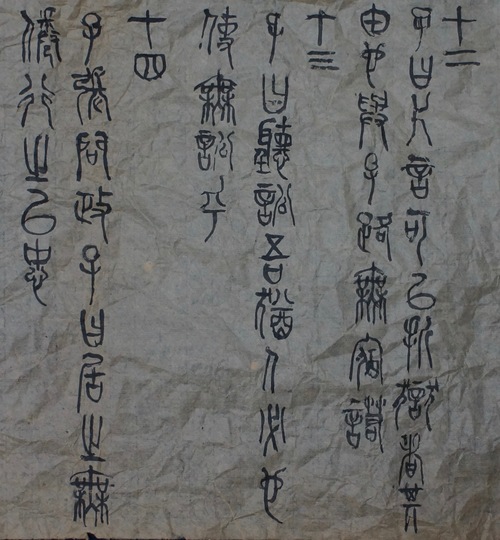 十二
子曰片言可以折獄者其
由也與子路無宿諾
十三
子曰聽訟吾猶人必也
使無訟乎
十四
子張問政子曰居之無
倦行之以忠